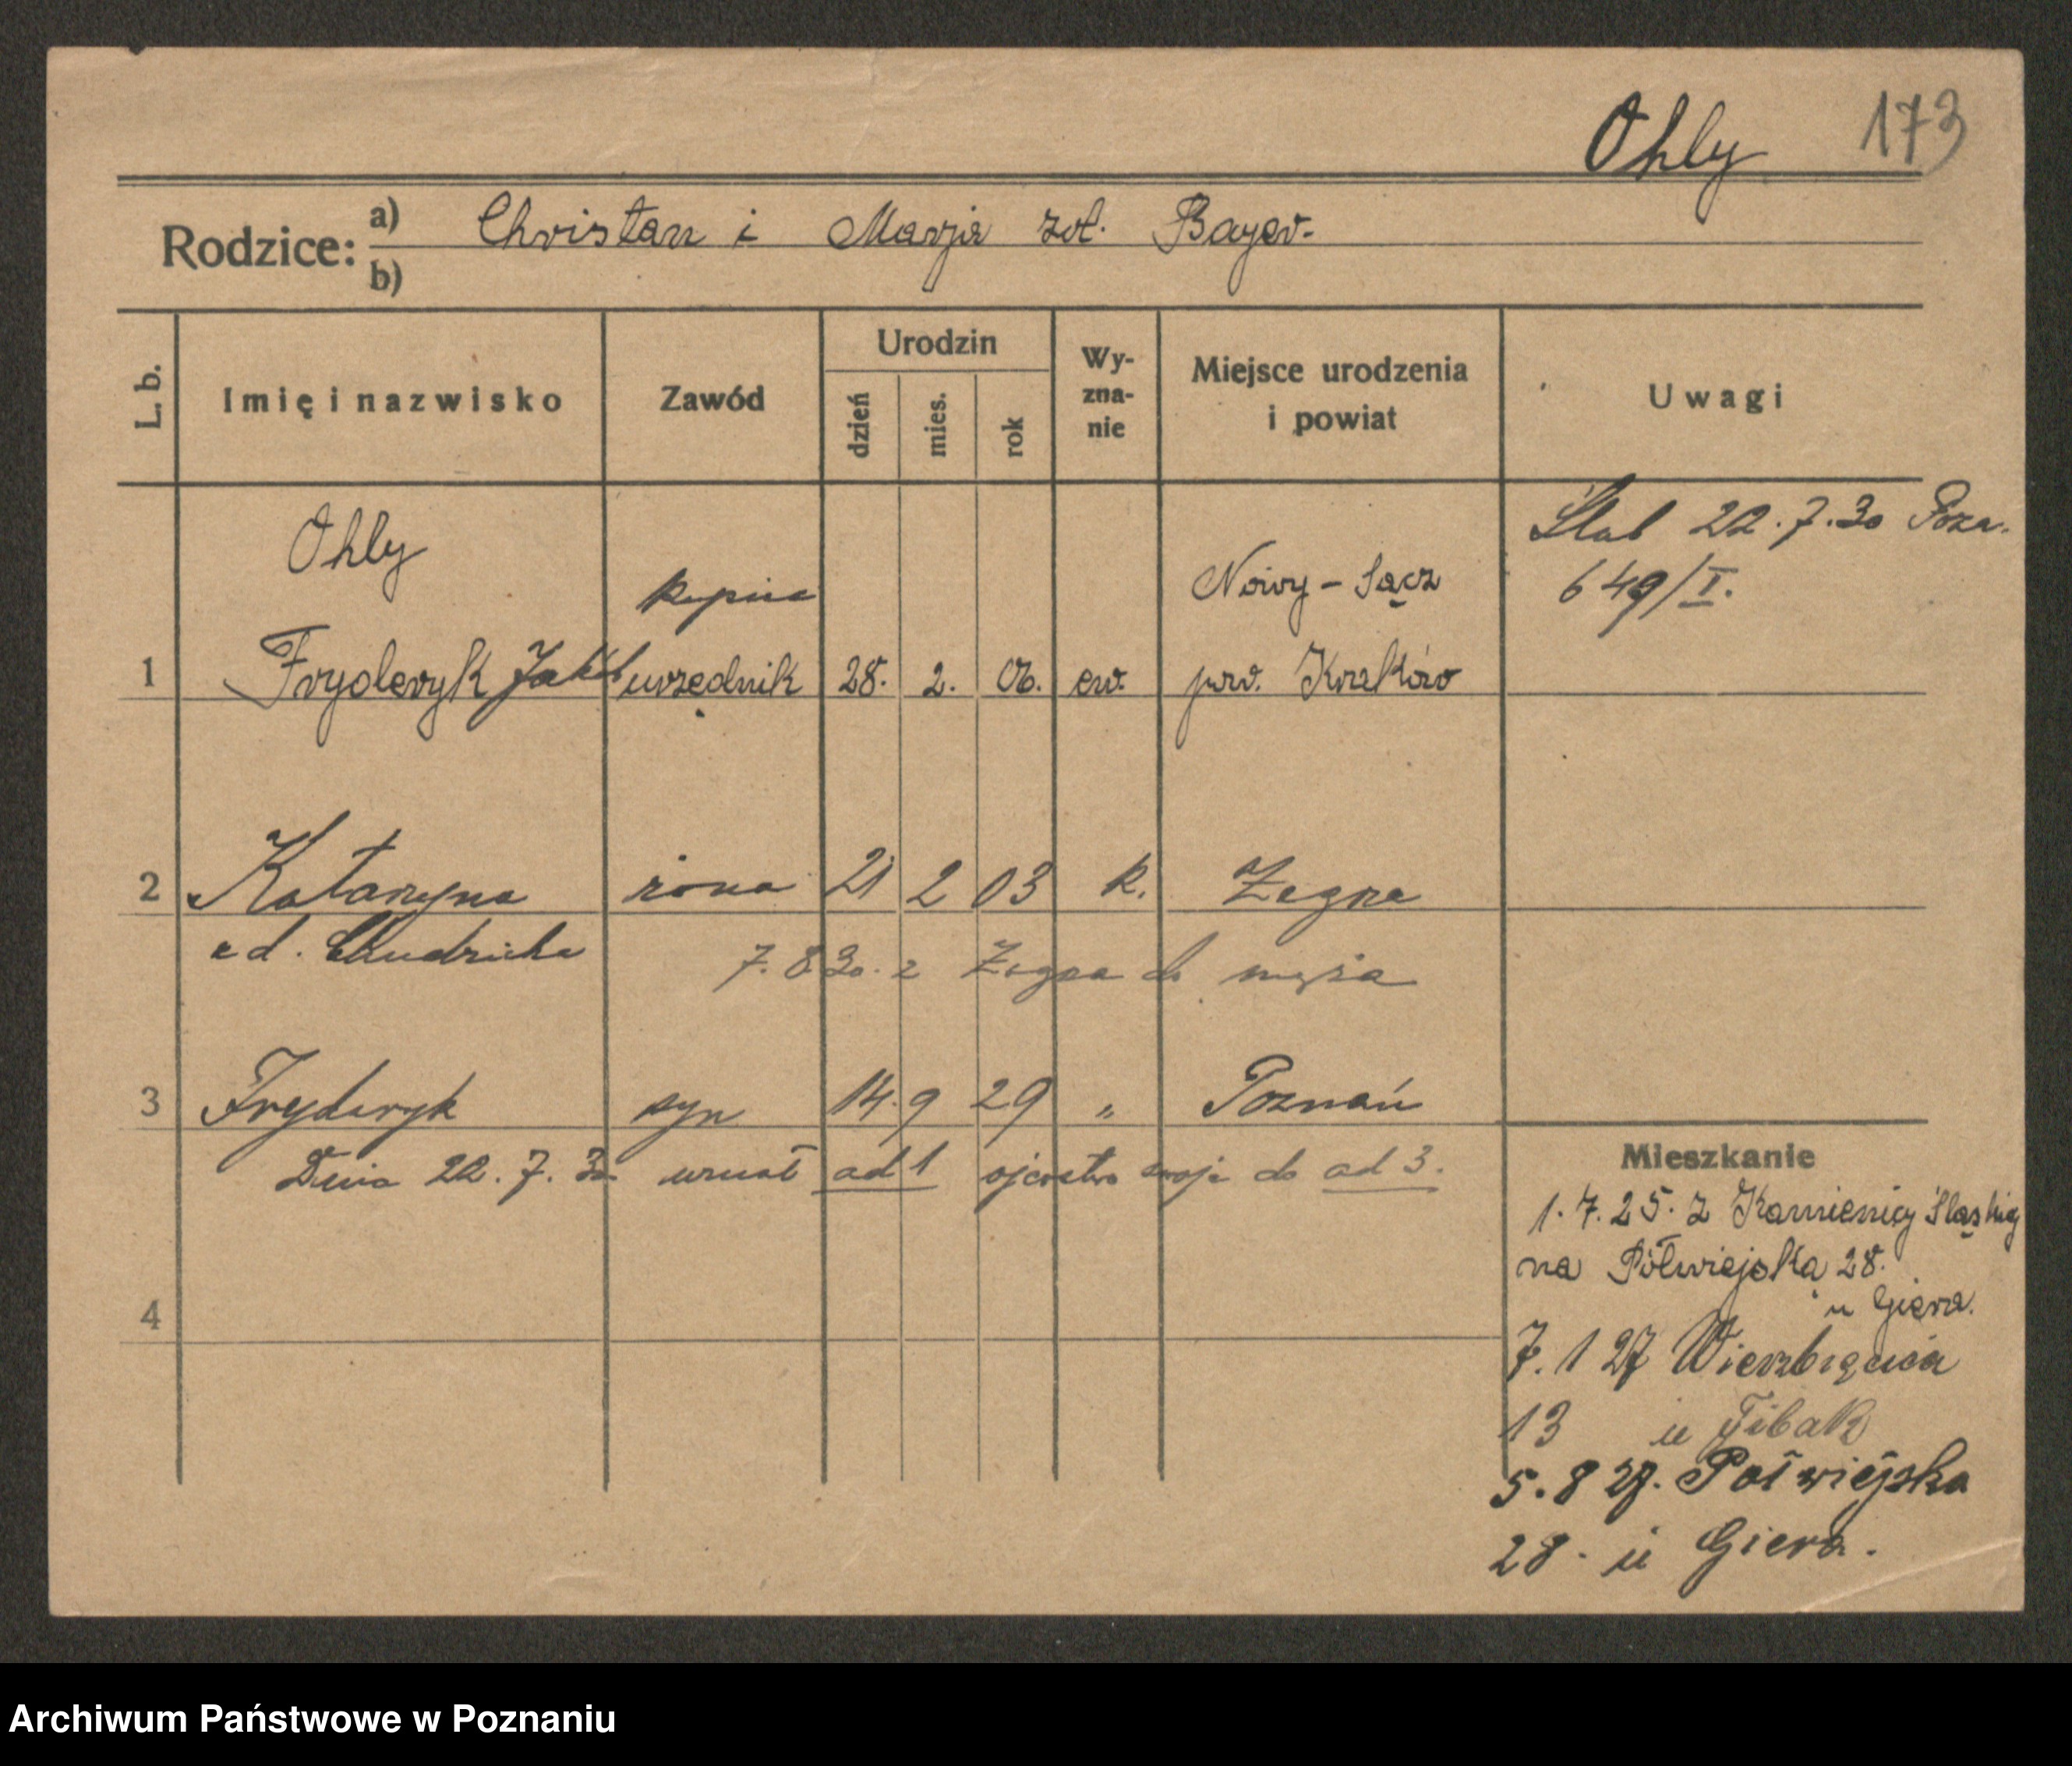 Ohly 173
Rodzice: a) Christan i Marja zd. Bayer.
b)
L. b. Imię i nazwisko Zawód Urodzin dzień mies. rok Wy-zna-nie Miejsce urodzenia i powiat Uwagi
Ślub 22.7.30 Pozn.
649/I.
Ohly
kupiec
Nowy-Sącz
1 Fryderyk Jakób urzędnik 28. 2. 06. ew. pow. Kraków
2 Katarzyna żona 21 2 03 k.
7.8 30. z do męża
3 Fryderyk syn 14. 9 29 „ Poznań
Dnia 22. 7. 30 uznał ad 1 ojcostwo swoje do ad 3.
4
Mieszkanie
1.7.25. z Kamienicy Śląskiej
na Półwiejską 28.
u Giera.
7. 1 27 Wierzbięcice
13 u Fibak
5. 8 27. Półwiejska
28. u Giera.
Archiwum Państwowe w Poznaniu